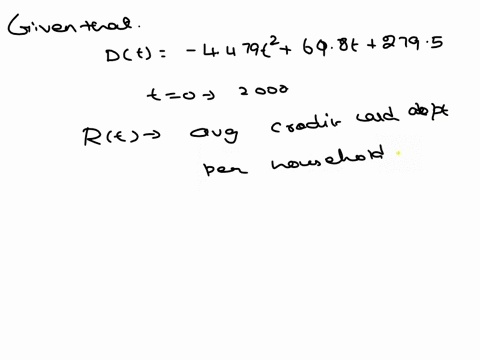 Given that.
D(t) = -4479t² + 60.8t + 279.5
t=0 → 2000
R(t) → avg credit card debt
per household